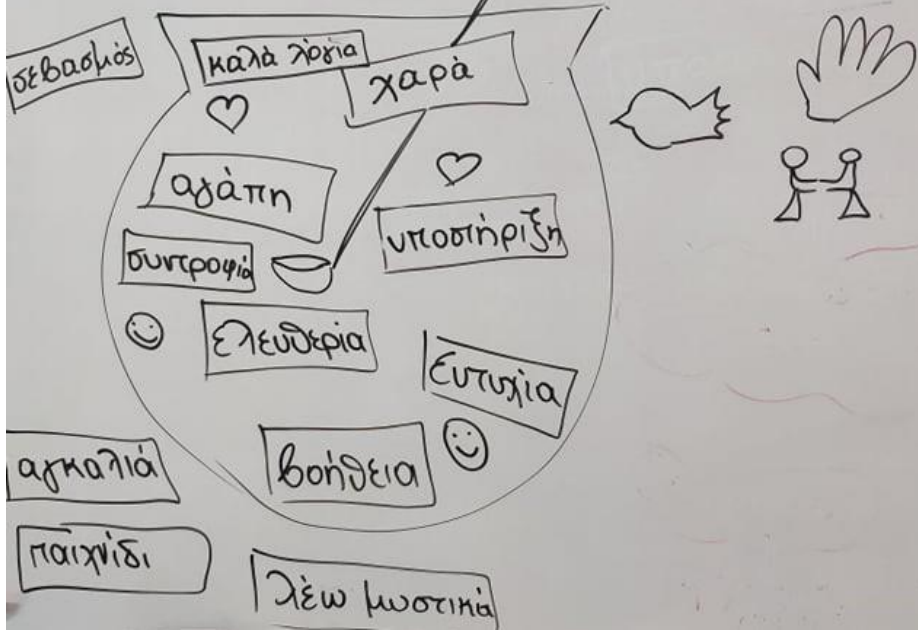 σεβασμός
καλά λόγια
χαρά
αγάπη
υποστήριξη
συντροφιά
ελευθερία
ευτυχία
αγκαλιά
βοήθεια
παιχνίδι
λέω μυστικά